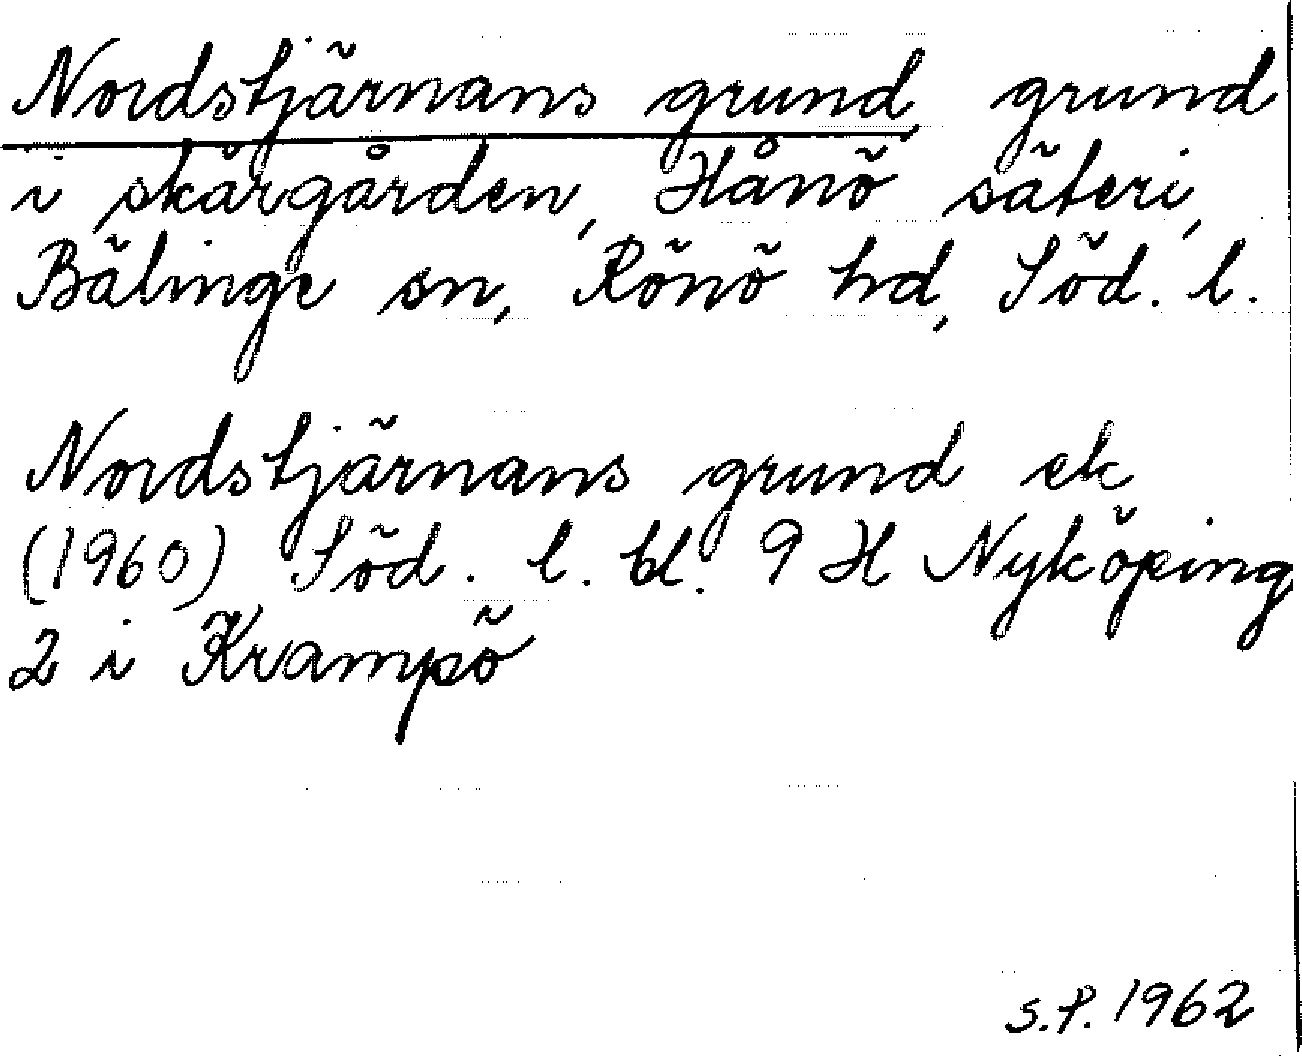 Nordstjärnans grund, grund
i skärgården, Hånö säteri,
Bälinge sn, Rönö hd, Söd. l.
Nordstjärnans grund ek
(1960) Söd. l. bl. 9 H Nyköping
2 i Krampö
S.P. 1962